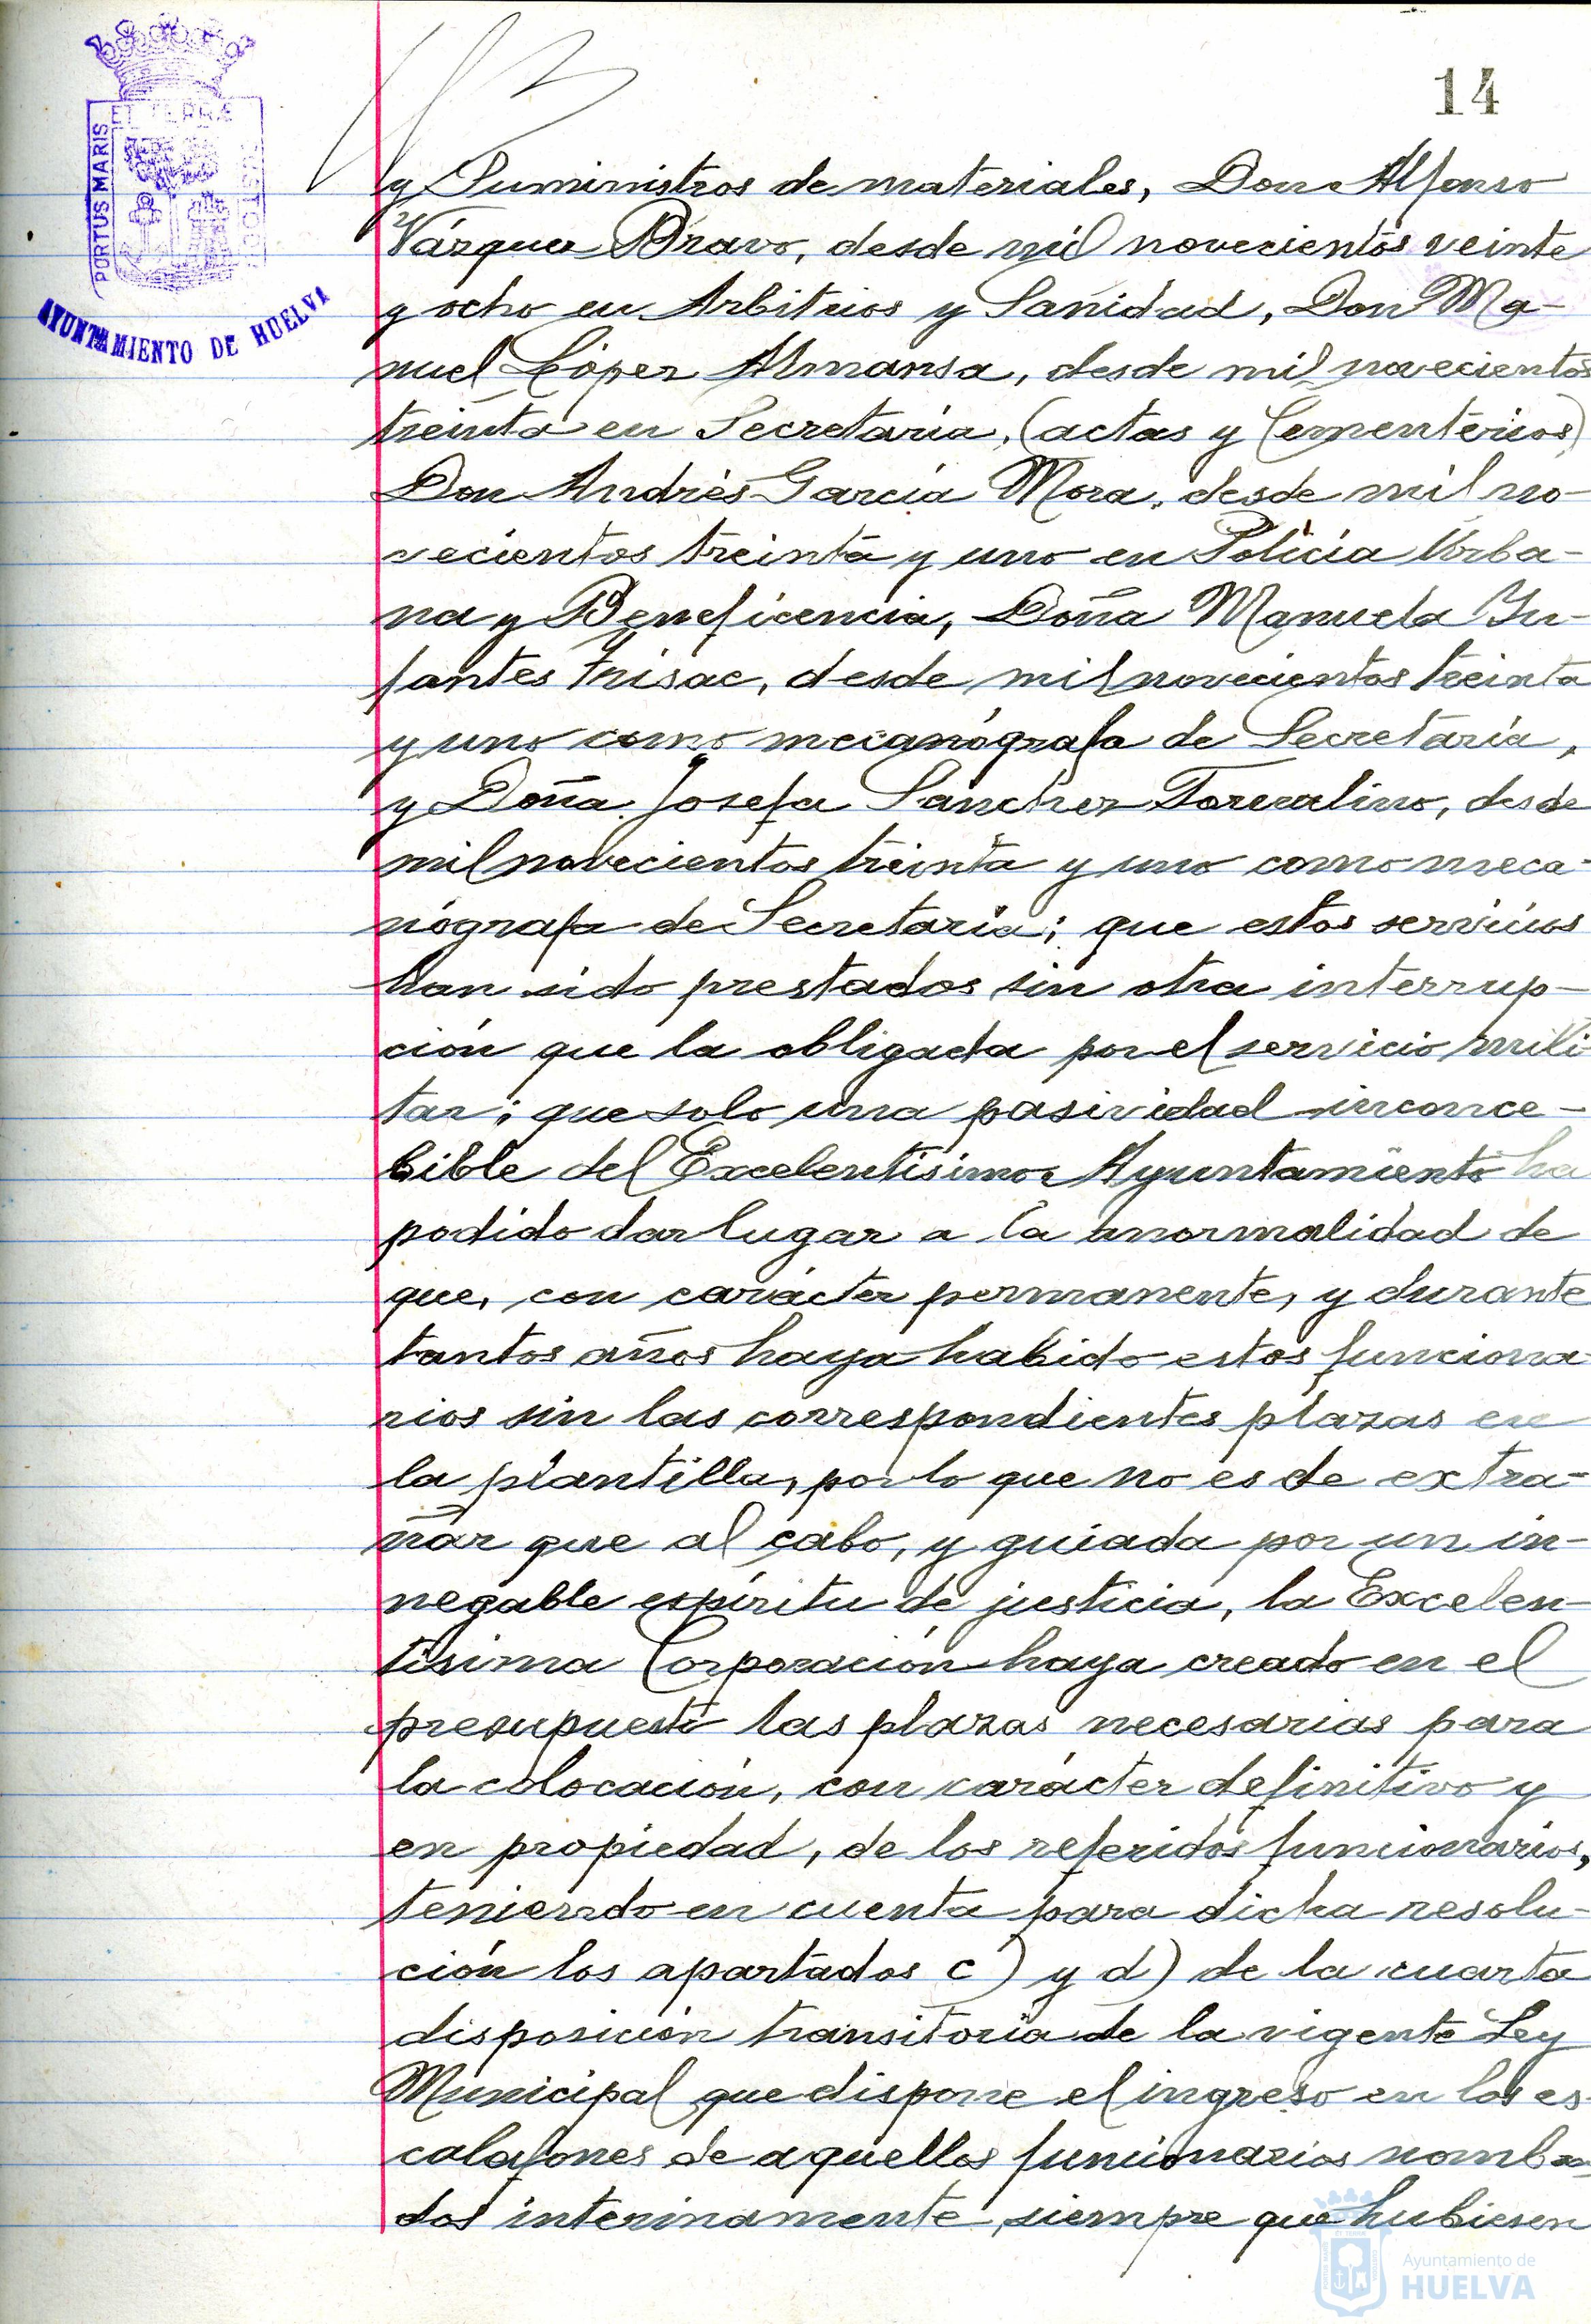 14
ET TERRÆ
PORTUS MARIS
CUSTODIA
AYUNTAMIENTO DE HUELVA
y Suministros de materiales, Don Alfonso
Vázquez Bravo, desde mil novecientos veinte
y ocho en Arbitrios y Sanidad, Don Ma-
nuel López Almansa, desde mil novecientos
treinta en Secretaría, (actas y Cementerios)
Don Andrés García Mora, desde mil no-
vecientos treinta y uno en Policía Urba-
na y Beneficencia, Doña Manuela In-
fantes Trisac, desde mil novecientos treinta
y uno como mecanógrafa de Secretaría,
y Doña Josefa Sánchez Torralino, desde
mil novecientos treinta y uno como meca-
nógrafa de Secretaría; que estos servicios
han sido prestados sin otra interrup-
ción que la obligada por el servicio mili-
tar; que solo una pasividad inconce-
bible del Excelentísimo Ayuntamiento ha
podido dar lugar a la anormalidad de
que, con carácter permanente, y durante
tantos años haya habido estos funciona-
rios sin las correspondientes plazas en
la plantilla, por lo que no es de extra-
ñar que al cabo, y guiada por un in-
negable espíritu de justicia, la Excelen-
tísima Corporación haya creado en el
presupuesto las plazas necesarias para
la colocación, con carácter definitivo y
en propiedad, de los referidos funcionarios,
teniendo en cuenta para dicha resolu-
ción los apartados c) y d) de la cuarta
disposición transitoria de la vigente Ley
Municipal que dispone el ingreso en los es-
calafones de aquellos funcionarios nombra-
dos interinamente, siempre que hubiesen
Ayuntamiento de
HUELVA